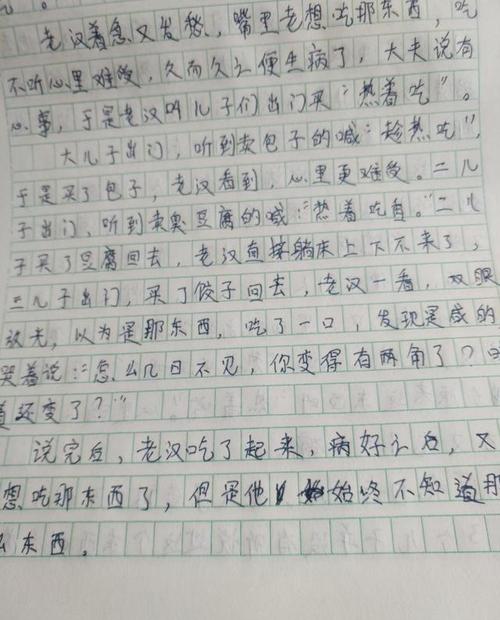 老汉着急又发愁，嘴里老想吃那东西，吃
不听心里难受，久而久之便生病了，大夫说有
心事，于是老汉叫儿子们出门买“热着吃”。
大儿子出门，听到卖包子的喊：趁热吃"，
于是买了包子，老汉看到，心里更难受。二儿
子出门、听到卖臭豆腐的喊："热着吃香。"二儿
子买了豆腐回去，老汉直接躺床上下不来了，
三儿子出门，买了饺子回去，老汉一看，双眼
放光，以为是那东西，吃了一口，发现是咸的
哭着说："怎么几日不见，你变得有两角了？
道还变了？"
说完后，老汉吃了起来，病好之后，又
想吃那东西了，但是他始终不知道那
么东西。